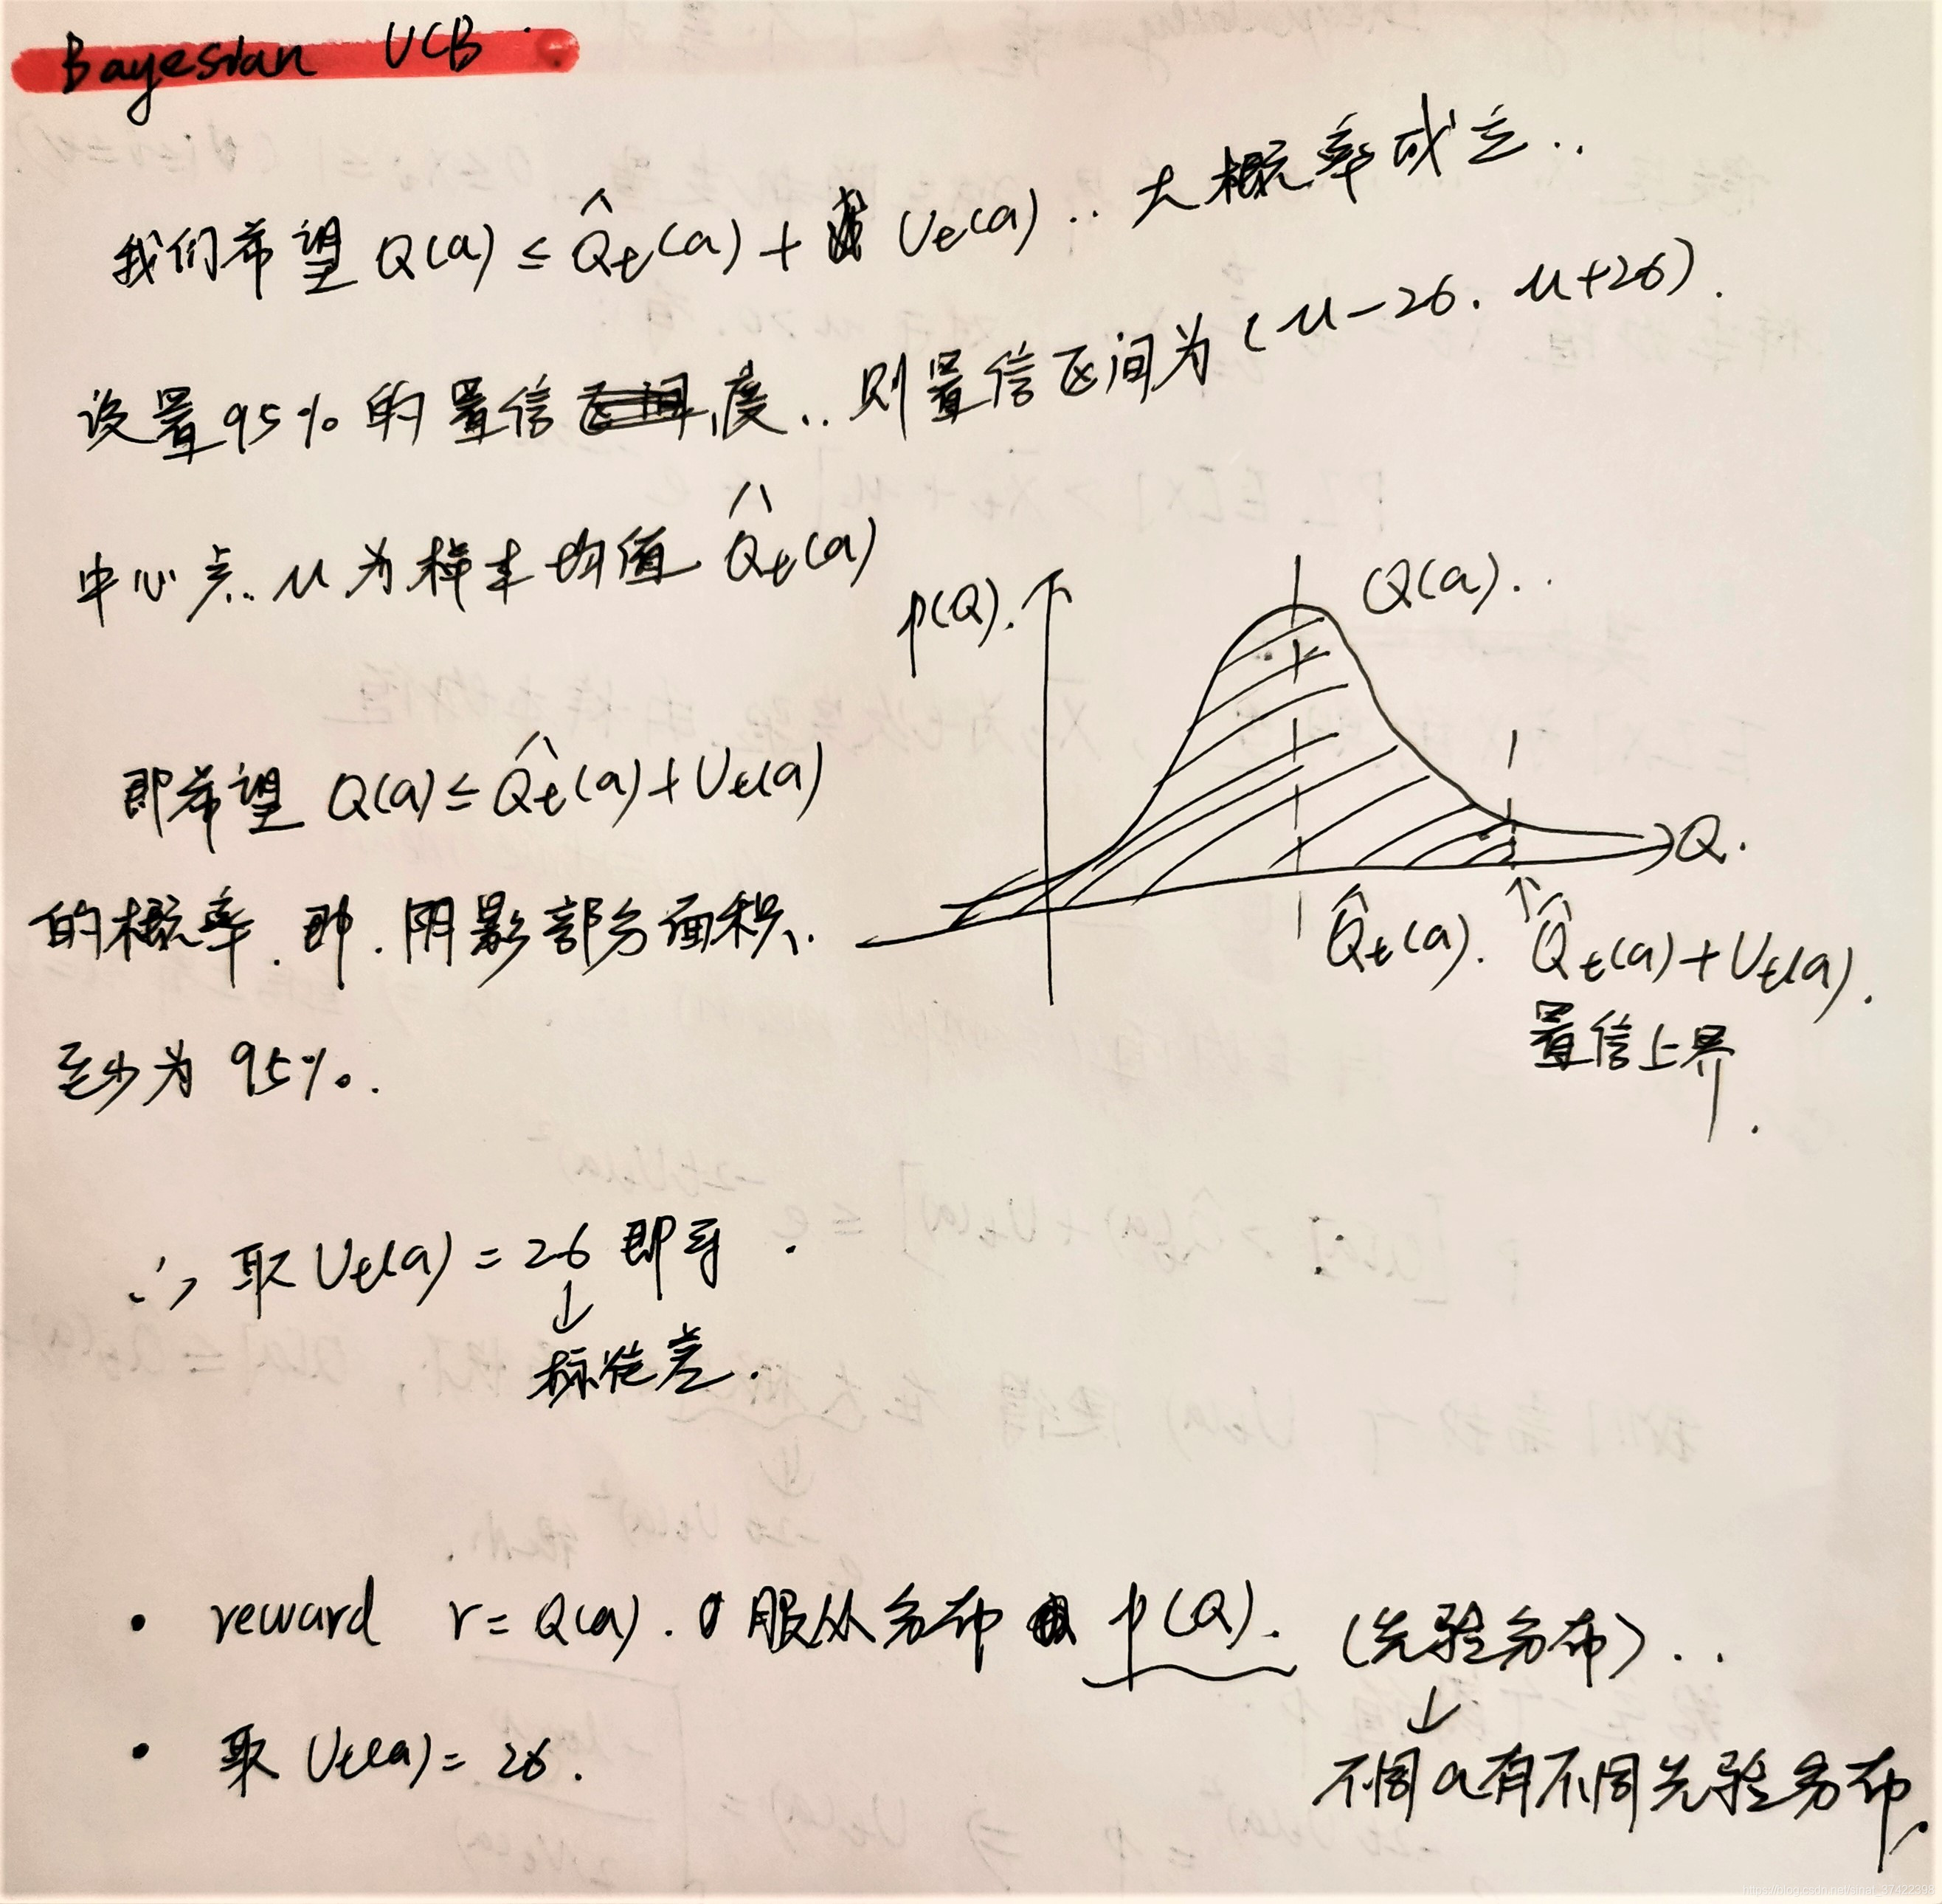 Bayesian UCB
我们希望 Q(a) ≤ Q̂t(a) + Ut(a) .. 大概率成立..
设置95%的置信度.. 则置信区间为(μ-2σ, μ+2σ).
中心点.. μ为样本均值 Q̂t(a)
p(Q).
Q(a)..
即希望 Q(a) ≤ Q̂t(a) + Ut(a)
Q.
的概率.即.阴影部分面积.
Q̂t(a).
↑
Q̂t(a) + Ut(a).
置信上界.
至少为 95%.
∴ 取 Ut(a) = 2σ 即可.
↓
标准差.
• reward r = Q(a). 服从分布 p(Q). (先验分布)..
↓
• 取 Ut(a) = 2σ.
不同a有不同先验分布.